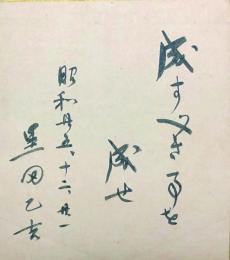 成すべき事を
成せ
昭和卅五、十二、廿一
黒田乙吉